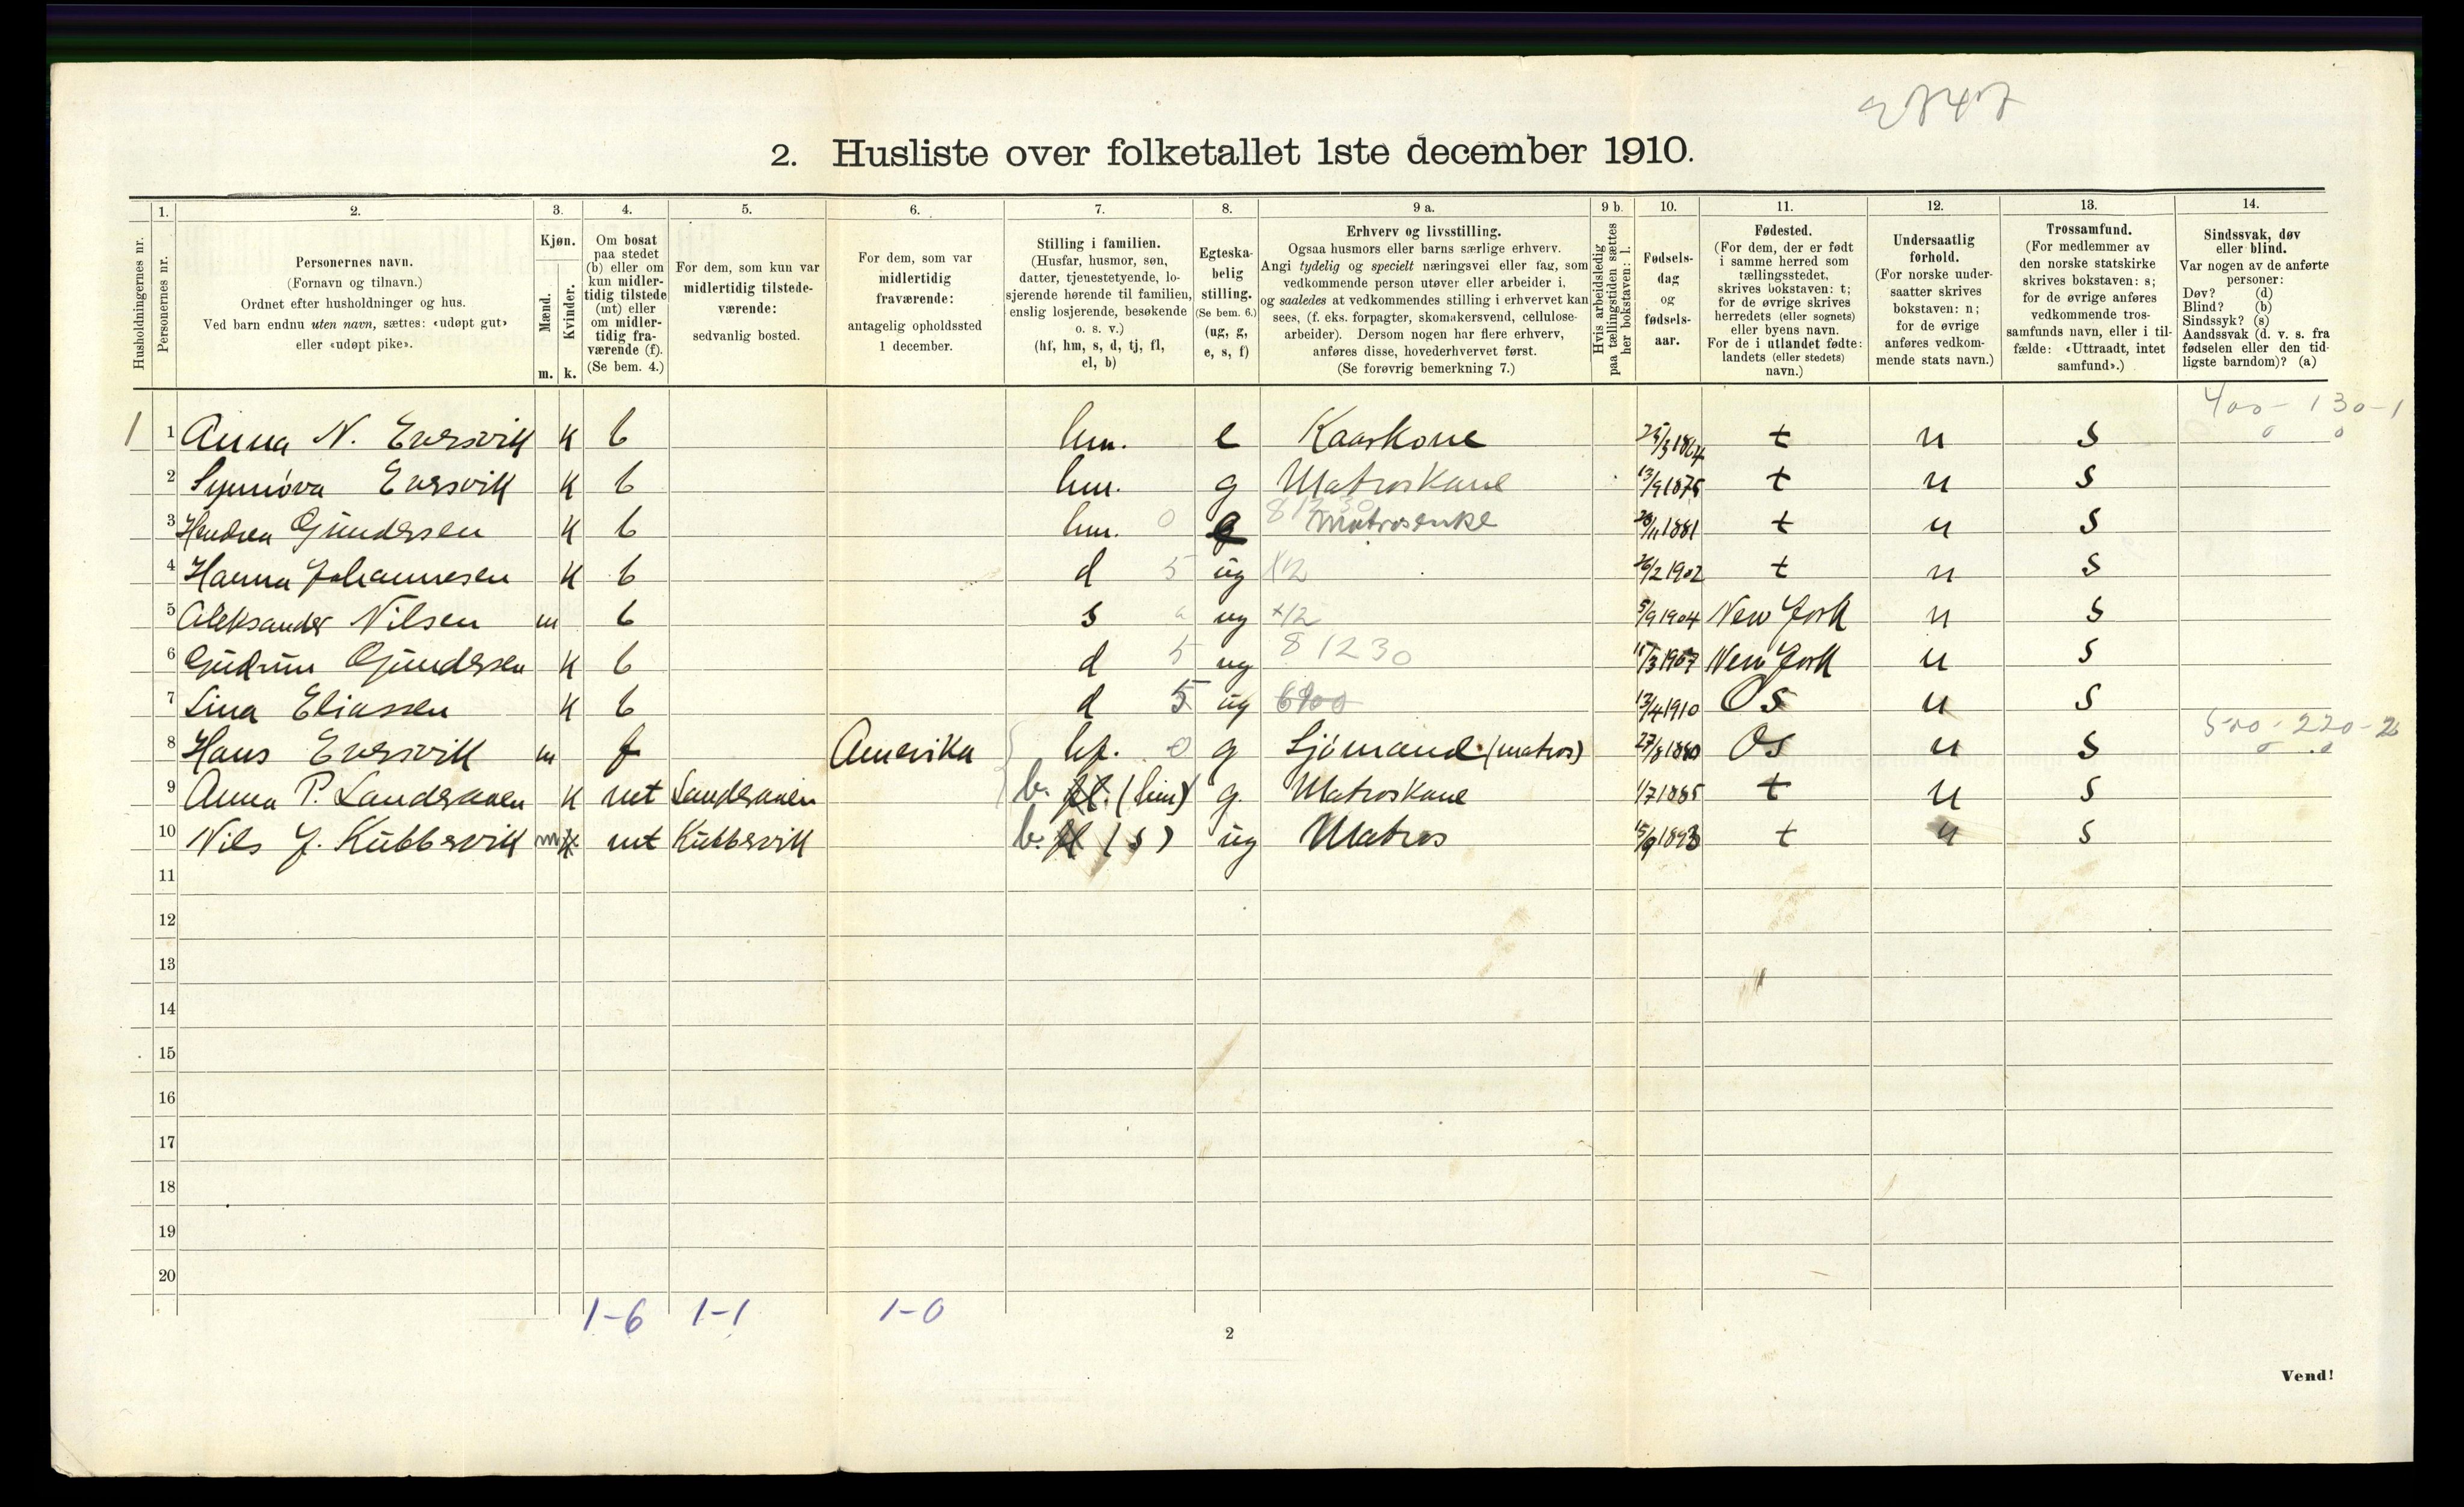 2747
2. Husliste over folketallet 1ste december 1910.
Husholdningernes nr.
1. Personernes nr.
2. Personernes navn.
(Fornavn og tilnavn.)
Ordnet efter husholdninger og hus.
Ved barn endnu uten navn, sættes: «udøpt gut»
eller «udøpt pike».
3. Kjøn.
Mænd. Kvinder.
m. k.
4. Om bosat
paa stedet
(b) eller om
kun midler-
tidig tilstede
(mt) eller
om midler-
tidig fra-
værende (f).
(Se bem. 4.)
5. For dem, som kun var
midlertidig tilstede-
værende:
sedvanlig bosted.
6. For dem, som var
midlertidig
fraværende:
antagelig opholdssted
1 december.
7. Stilling i familien.
(Husfar, husmor, søn,
datter, tjenestetyende, lo-
sjerende hørende til familien,
enslig losjerende, besøkende
o. s. v.)
(hf, hm, s, d, tj, fl,
el, b)
8. Egteska-
belig
stilling.
(Se bem. 6.)
(ug, g,
e, s, f)
9 a. Erhverv og livsstilling.
Ogsaa husmors eller barns særlige erhverv.
Angi tydelig og specielt næringsvei eller fag, som
vedkommende person utøver eller arbeider i,
og saaledes at vedkommendes stilling i erhvervet kan
sees, (f. eks. forpagter, skomakersvend, cellulose-
arbeider). Dersom nogen har flere erhverv,
anføres disse, hovederhvervet først.
(Se forøvrig bemerkning 7.)
9 b. Hvis arbeidsledig
paa tællingstiden sættes
her bokstaven: l.
10. Fødsels-
dag
og
fødsels-
aar.
11. Fødested.
(For dem, der er født
i samme herred som
tællingsstedet,
skrives bokstaven: t;
for de øvrige skrives
herredets (eller sognets)
eller byens navn.
For de i utlandet fødte:
landets (eller stedets)
navn.)
12. Undersaatlig
forhold.
(For norske under-
saatter skrives
bokstaven: n;
for de øvrige
anføres vedkom-
mende stats navn.)
13. Trossamfund.
(For medlemmer av
den norske statskirke
skrives bokstaven: s;
for de øvrige anføres
vedkommende tros-
samfunds navn, eller i til-
fælde: «Uttraadt, intet
samfund».)
14. Sindssvak, døv
eller blind.
Var nogen av de anførte
personer:
Døv? (d)
Blind? (b)
Sindssyk? (s)
Aandssvak (d. v. s. fra
fødselen eller den tid-
ligste barndom)? (a)
400-130-1
1 1 Anna N. Eversvik k b hm. e Kaarkone 25/3 1864 t n s
2 Synnøva Eversvik k b hm. g Matroskone 13/9 1875 t n s
3 Hendrea Gundersen k b hm. 0 e 81230 Matrosenke 28/11 1881 t n s
4 Hanna Johannesen k b d 5 ug x12 26/2 1902 t n s
5 Aleksander Nilsen m b s ug x12 5/9 1904 New York n s
6 Gudrun Gundersen k b d 5 ug 81230 15/3 1907 New York n s
7 Lina Eliassen k b d 5 ug 6900 13/4 1910 Os n s
500-220-2
8 Hans Eversvik m f Amerika hf. 0 g Sjømand (matros) 27/8 1880 Os n s
9 Anna P. Landeraaen k mt Landeraaen b. fl. (hm) g. Matroskone 1/7 1885 t n s
10 Nils J. Kubbervik m k mt Kubbervik b. fl (s) ug Matros 15/9 1893 t n s
11
12
13
14
15
16
17
18
19
20
1-6 1-1 1-0
2
Vend!